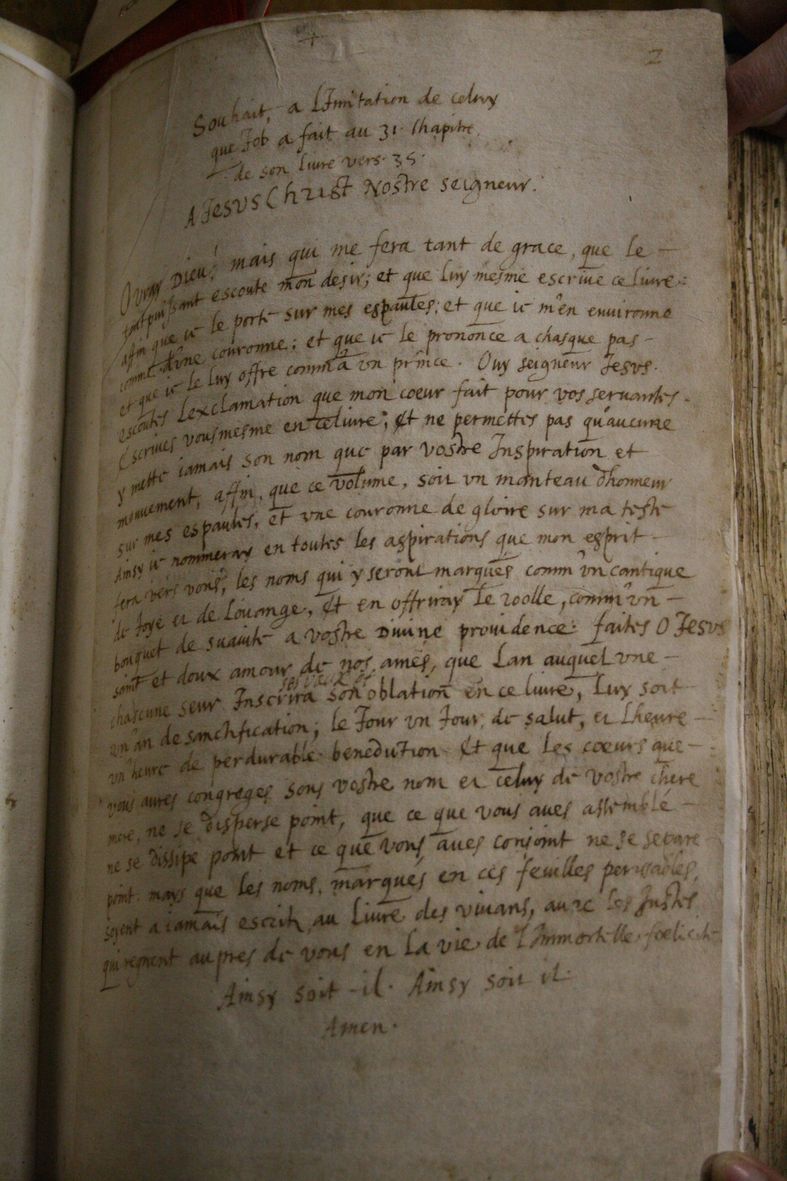 2
Souhait, a L'Imitation de celuy
que Job a fait au 31. Chapitre
de son livre vers. 35.
A Jesus Christ Nostre seigneur.
O vray Dieu! mais qui me fera tant de grace, que le
toutpuissant escoute mon desir; et que luy mesme escrive ce livre:
affin que ie le porte sur mes espaules; et que ie m'en environne
comme d'une couronne; et que ie le prononce a chasque pas
et que ie le luy offre comm'a un prince. Ouy seigneur Jesus.
escoutes L'exclamation que mon coeur fait pour vos servantes.
Escrives vousmesme en ce livre; Et ne permettes pas qu'aucune
y mette iamais son nom que par vostre Inspiration et
mouvement, affin, que ce volume, soit un manteau d'honneur
sur mes espaules, et une couronne de gloire sur ma teste
Ainsy ie nommeray en toutes les aspirations que mon esprit
fera vers vous, les noms qui y seront marqués comm'un cantique
de Joye et de Louange, Et en offriray le roolle, comm'un
bouquet de suavité a vostre Divine providence: faites O Jesus
saint et doux amour de nos ames, que Lan auquel une
chascune seur Inscrira son oblation en ce livre, luy soit
un'an de sanctification; le Jour un Jour de salut, et l'heure
un'heure de perdurable benediction Et que les coeurs que
vous aves congreges sous vostre nom et celuy de vostre chere
mere, ne se disperse point, que ce que vous aves assemblé
ne se dissipe point et ce que vous aves conjoint ne se separe
point. mays que les noms, marqués en ces feuilles perisables,
soyent a iamais escrits au Livre des vivans, avec les Justes
qui regnent aupres de vous en la vie de l'Immortelle foelicité
Ainsy soit-il. Ainsy soit il.
Amen.